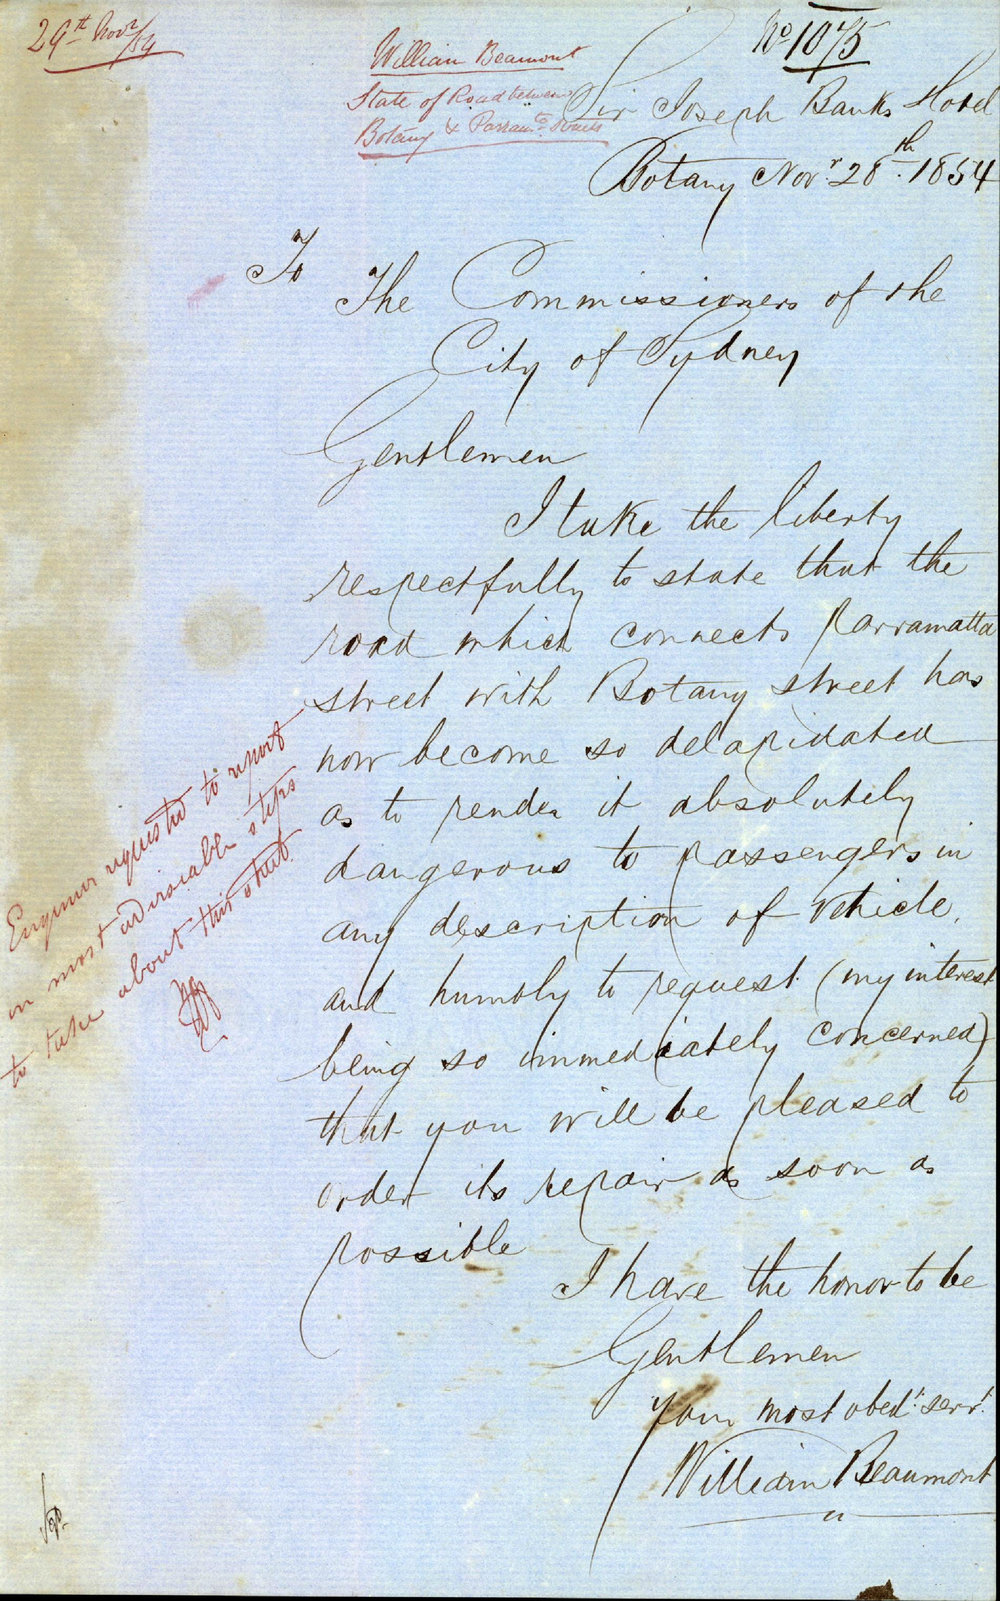 29th Novr/54
No 1075
William Beaumont
State of Road between
Botany & Parramta Streets
Sir Joseph Banks Hotel
Botany Novr. 28th. 1854
To
The Commissioners of the
City of Sydney
Gentlemen
I take the liberty
respectfully to state that the
road which connects Parramatta
street with Botany street has
now become so delapidated
as to render it absolutely
dangerous to passengers in
any description of Vehicle,
and humbly to request (my interest
being so immediately concerned)
that you will be pleased to
order its repair as soon as
possible
I have the honor to be
Gentlemen
Your most obedt. servt.
William Beaumont
Engineer requested to report
on most advisable steps
to take about this street